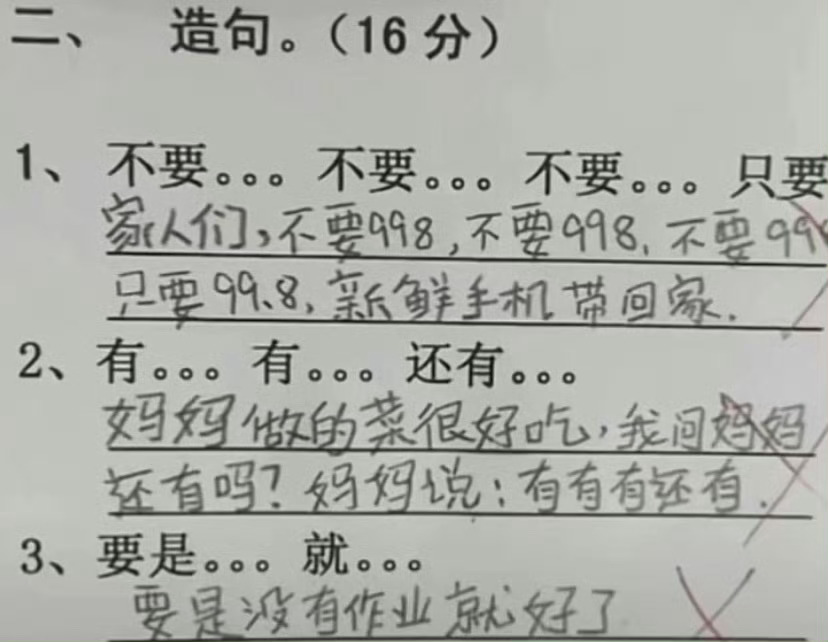 二、 造句。（16 分）
1、不要。。。不要。。。不要。。。只要
家人们，不要998，不要998，不要99
只要99.8，新鲜手机带回家.
2、有。。。有。。。还有。。。
妈妈做的菜很好吃，我问妈妈
还有吗？妈妈说：有有有还有.
3、要是。。。就。。。
要是没有作业就好了